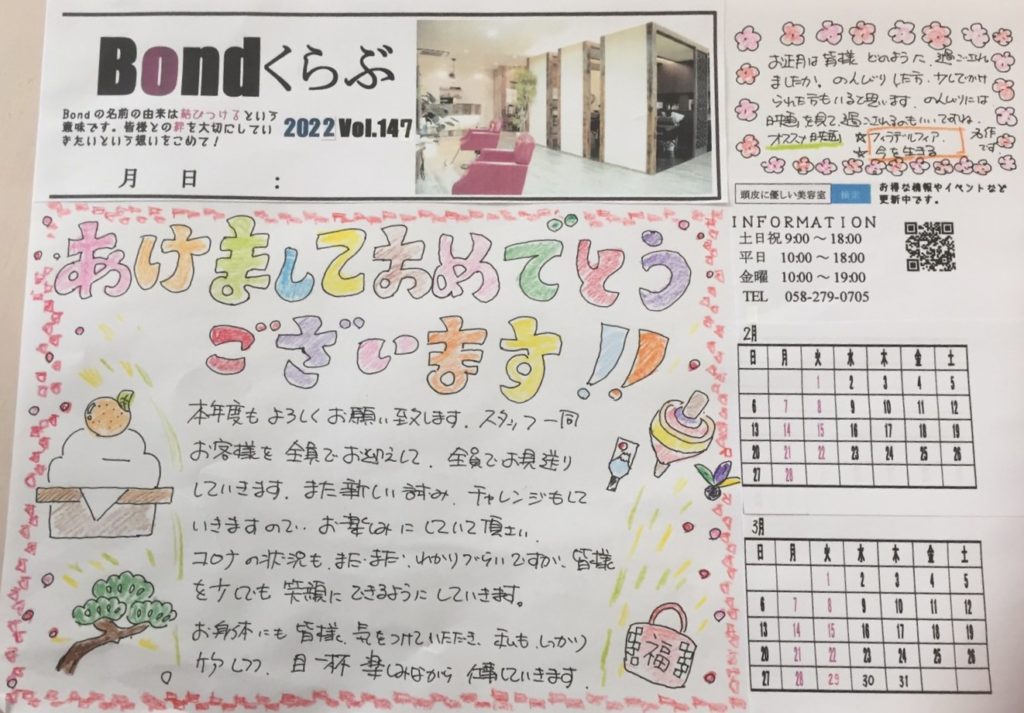 Bondくらぶ
Bondの名前の由来は結びつけるという
意味です。皆様との絆を大切にしてい
きたいという想いをこめて！
2022 Vol.147
月 日 :
お正月は皆様どのように過ごされ
ましたか。のんびりした方、少しでかけ
られた方もいると思います。のんびりには
映画を見て過ごされるのもいいですね。
オススメ映画 ☆フィラデルフィア、 名作
☆今を生きる です
頭皮に優しい美容室 検索
お得な情報やイベントなど
更新中です。
INFORMATION
土日祝 9:00～18:00
平日 10:00～18:00
金曜 10:00～19:00
TEL 058-279-0705
あけましておめでとう
ございます!!
本年度もよろしくお願い致します。スタッフ一同
お客様を全員でお迎えして、全員でお見送り
していきます。また新しい試み、チャレンジもして
いきますので、お楽しみにしていて頂
コロナの状況も、まだまだ、わかりづらいですが、皆様
を少しでも笑顔にできるようにしていきます。
お身体にも皆様、気をつけていただき、私もしっかり
ケアしつつ、目一杯楽しみながら仕事していきます。
福
2月
日 月 火 水 木 金 土
1 2 3 4 5
6 7 8 9 10 11 12
13 14 15 16 17 18 19
20 21 22 23 24 25 26
27 28
3月
日 月 火 水 木 金 土
1 2 3 4 5
6 7 8 9 10 11 12
13 14 15 16 17 18 19
20 21 22 23 24 25 26
27 28 29 30 31